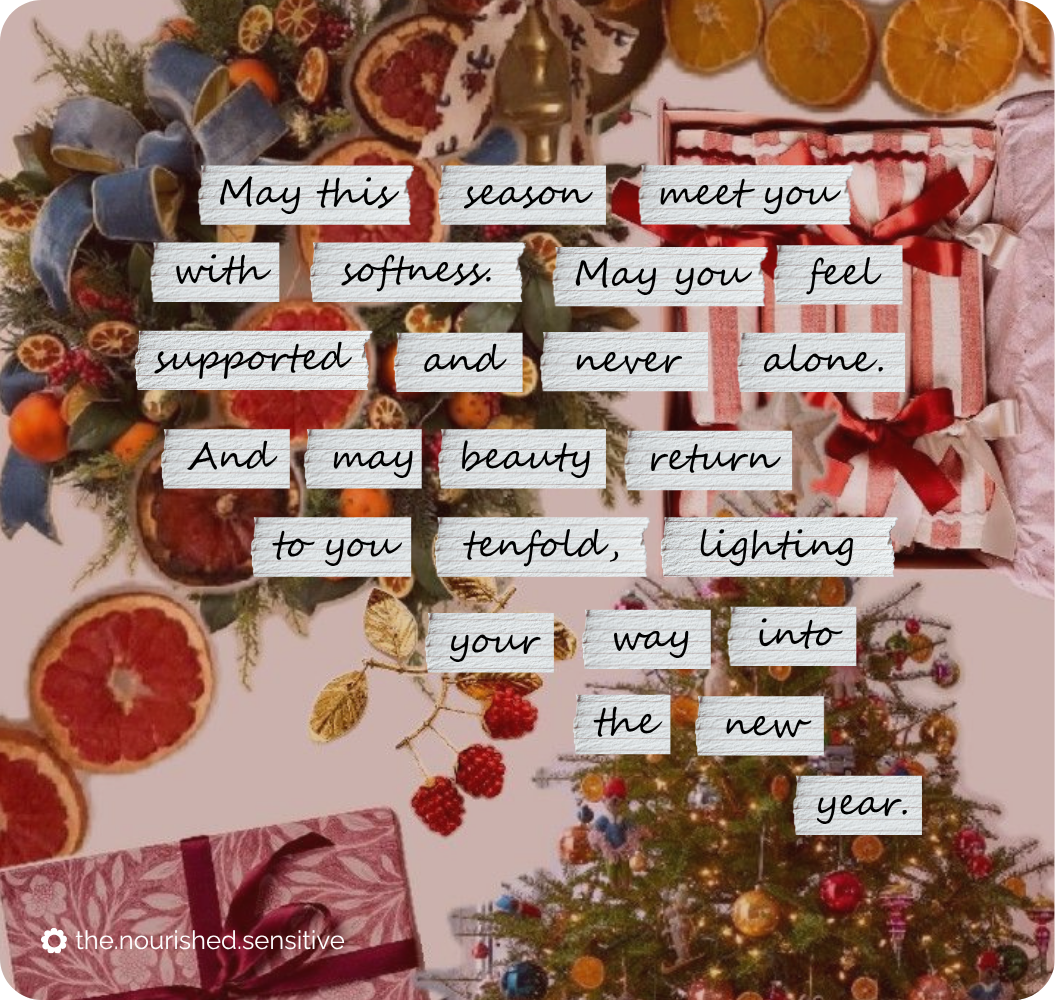 May this season meet you
with softness. May you feel
supported and never alone.
And may beauty return
to you tenfold, lighting
your way into
the new
year.
the.nourished.sensitive